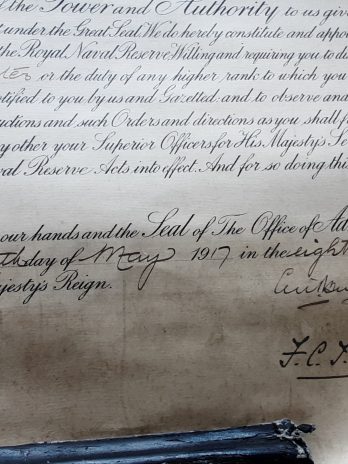 the Power and Authority to us giv
under the Great Seal, We do hereby constitute and appo
the Royal Naval Reserve Willing and requiring you to di
or the duty of any higher rank to which you
tified to you by us and Gazetted and to observe and
uctions and such Orders and directions as you shall f
y other your Superior Officers for His Majesty's Se
val Reserve Acts into effect. And for so doing this
our hands and the Seal of The Office of Ad
th day of May 1917 in the eight
ajesty's Reign.
F.C.T.